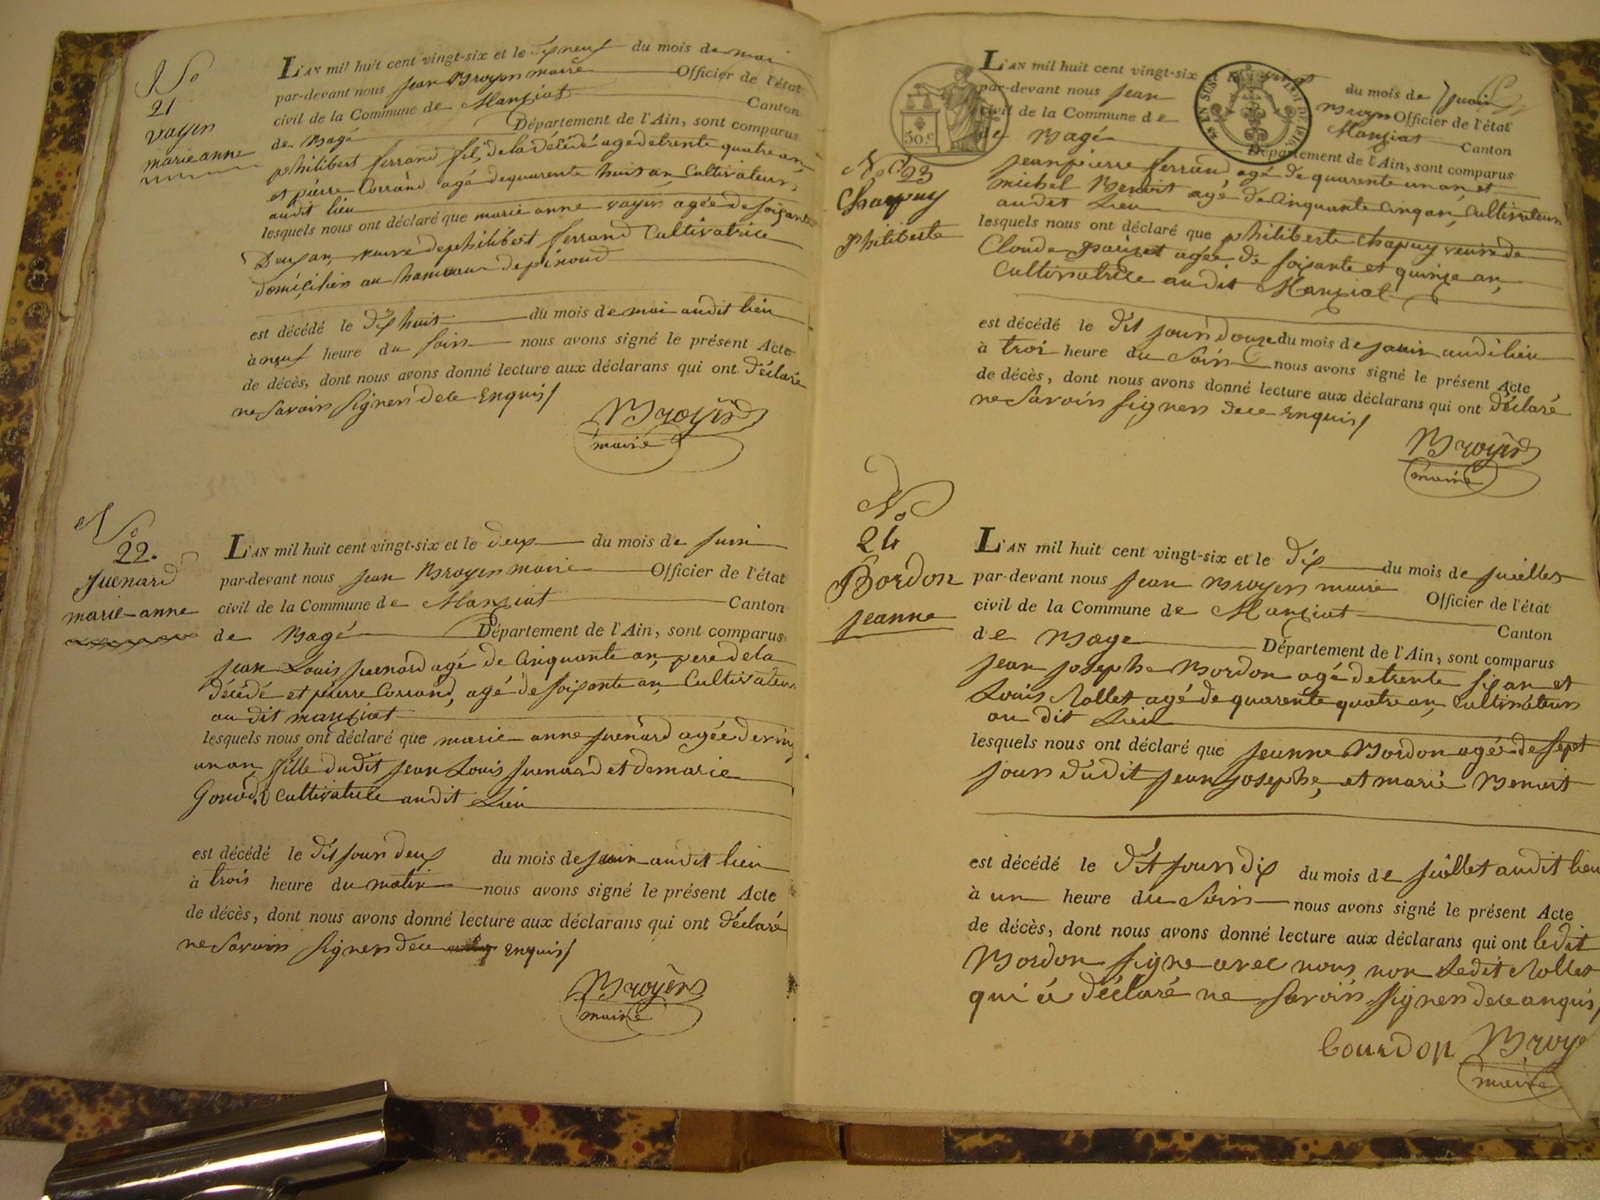 No
21
vayen
marie anne
L'AN mil huit cent vingt-six et le dixneuf du mois de mai
par-devant nous jean Broyer maire Officier de l'état
civil de la Commune de Manziat Canton
de Bagé Département de l'Ain, sont comparus
philibert ferrand fils de la décédé age de trente quatre an
et pierre Corrand agé de quarente huit an Cultivateur,
audit lieu
lesquels nous ont déclaré que marie anne vayen agée de soixante
Deux an, veuve de philibert ferrand Cultivatrice
domicilien au hamaux de
est décédé le dix huit du mois de mai audit lieu
à neuf heure du soir nous avons signé le présent Acte
de décès, dont nous avons donné lecture aux déclarans qui ont déclaré
ne Savoir Signer de ce Enquis
Broyer
maire
No
22.
juenard
marie-anne
L'AN mil huit cent vingt-six et le deux du mois de juin
par-devant nous jean Broyer maire Officier de l'état
civil de la Commune de Manziat Canton
de Bagé Département de l'Ain, sont comparus
jean Louis juenard agé de Cinquante an, pere de la
décédé et pierre Corrand, agé de soixante an, Cultivateur
au dit manziat
lesquels nous ont déclaré que marie anne juenard agée de vin
un an, fille dudit jean Louis juenard et de marie
cultivatrice audit Lieu
est décédé le dit jour deux du mois de juin audit lieu
à trois heure du matin nous avons signé le présent Acte
de décès, dont nous avons donné lecture aux déclarans qui ont déclaré
ne Savoir Signer de ce Enquis
Broyer
maire
50 c
EN SUS
No 23
Chapuy
philiberte
L'AN mil huit cent vingt-six du mois de juin
par-devant nous jean Broyer Officier de l'état
civil de la Commune de Manziat Canton
de Bagé Département de l'Ain, sont comparus
jean pierre ferrand agé de quarente un an et
michel Benoit agé de Cinquante Cinq an, Cultivateur
audit Lieu
lesquels nous ont déclaré que philiberte Chapuy veuve de
Claude agée de soixante et quinze an,
Cultivatrice audit Manziat
est décédé le dit jour douze du mois de juin audit lieu
à troi heure du Soir nous avons signé le présent Acte
de décès, dont nous avons donné lecture aux déclarans qui ont déclaré
ne Savoir signer de ce Enquis
Broyer
maire
No
24
Bordon
jeanne
L'AN mil huit cent vingt-six et le dix du mois de juillet
par-devant nous jean Broyer maire Officier de l'état
civil de la Commune de Manziat Canton
de Bage Département de l'Ain, sont comparus
jean josephe Bordon agé de trente six an et
Louis Rollet agé de quarente quatre an, Cultivateur
au dit Lieu
lesquels nous ont déclaré que jeanne Bordon agée de sept
jour dudit jean josephe, et marie Benoit
est décédé le dit jour dix du mois de juillet audit lieu
à un heure du Soir nous avons signé le présent Acte
de décès, dont nous avons donné lecture aux déclarans qui ont ledit
Bordon signe avec nous non Ledit Rollet
qui a déclaré ne Savoir Signer de ce anquis
bourdon Broye
maire